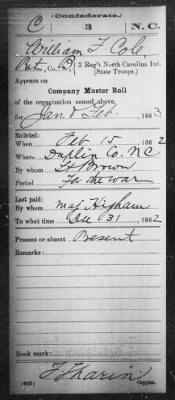 (Confederate.)
C 3 N.C.
William F. Cole
Pvt, Co. B, 3 Reg't North Carolina Inf.
(State Troops.)
Appears on
Company Muster Roll
of the organization named above,
for Jan & Feb, 1863
Enlisted:
When Feb 15, 1862
Where Duplin Co. NC
By whom Lt Brown
Period For the war
Last paid:
By whom Maj Higham
To what time Dec 31, 1862
Present or absent Present
Remarks:
Book mark:
(642) Copyist.